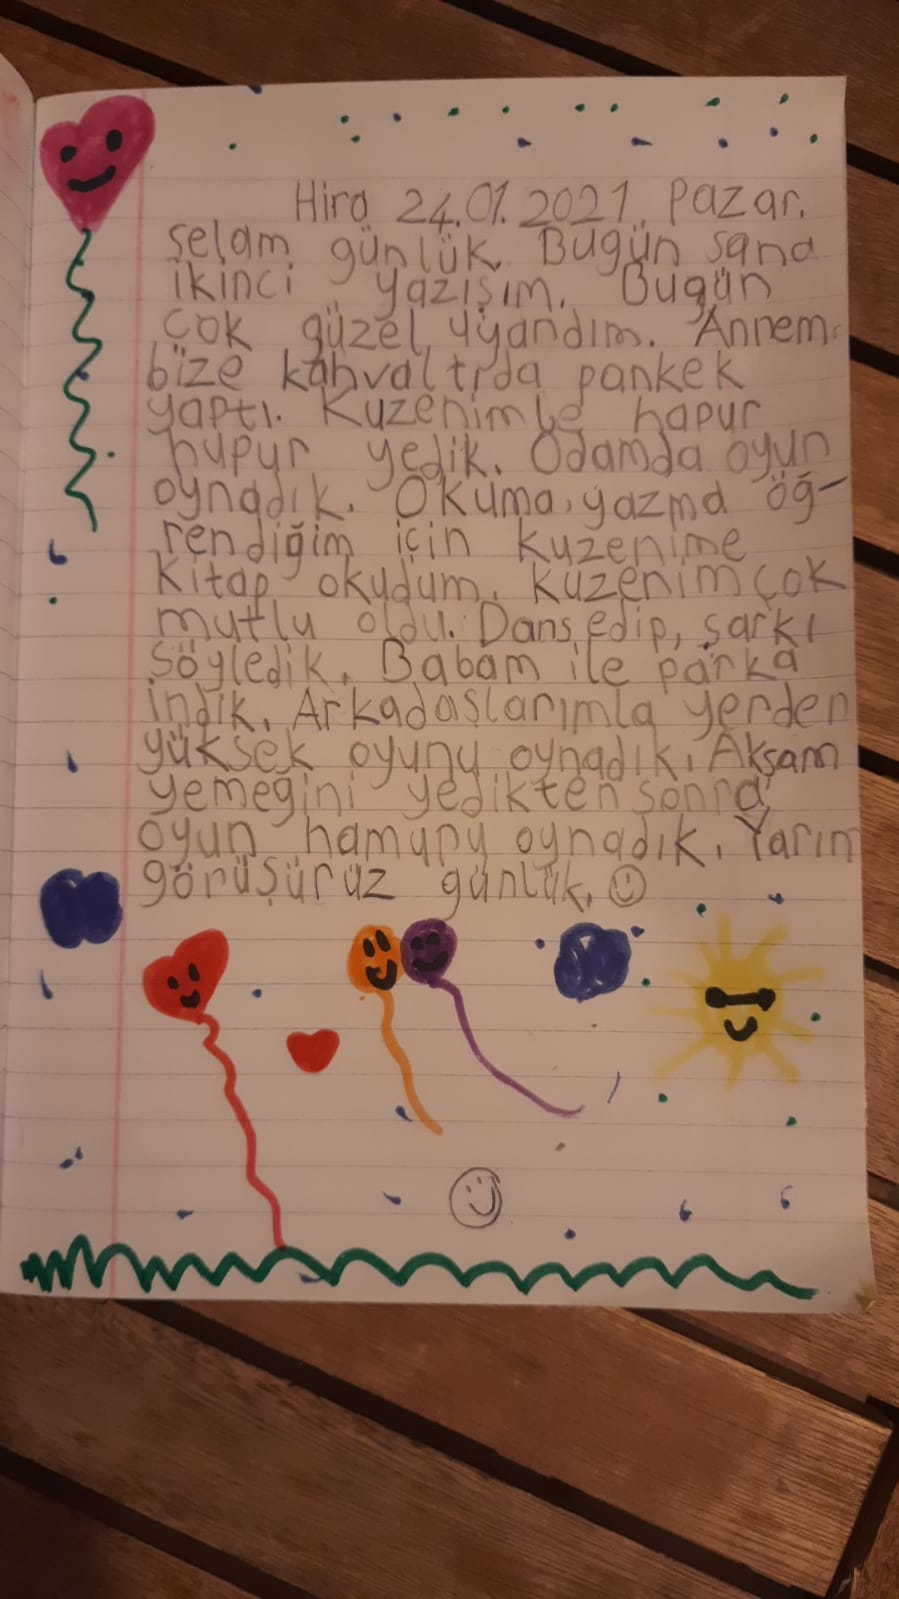 Hira 24.01.2021. Pazar.
selam günlük. Bugün sana
ikinci yazışım. Bugün
çok güzel uyandım. Annem
bize kahvaltıda pankek
yaptı. Kuzenimle hapur
hupur yedik. Odamda oyun
oynadık. Okuma, yazma öğ-
rendiğim için kuzenime
kitap okudum. Kuzenim çok
mutlu oldu. Dans edip, şarkı
söyledik. Babam ile parka
indik. Arkadaşlarımla yerden
yüksek oyunu oynadık. Akşam
yemeğini yedikten sonra
oyun hamuru oynadık. Yarın
görüşürüz günlük.